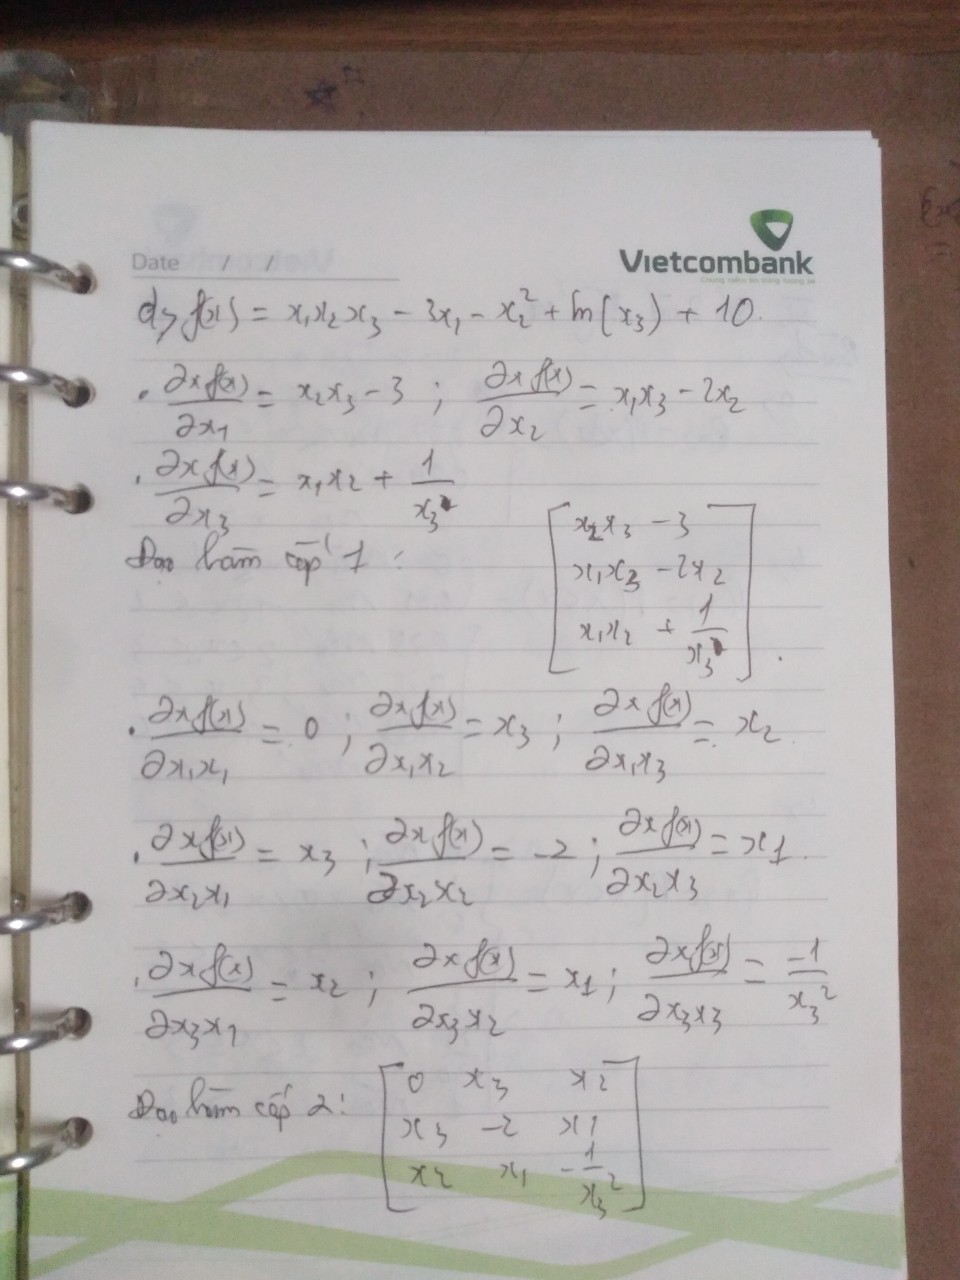 Date / /
Vietcombank
d, f(x) = x₁x₂x₃ - 3x₁ - x₂² + ln(x₃) + 10.
• ∂x f(x)/∂x₁ = x₂x₃ - 3 ; ∂x f(x)/∂x₂ = x₁x₃ - 2x₂
• ∂x f(x)/∂x₃ = x₁x₂ + 1/x₃
Đạo hàm cấp 1 : [ x₂x₃ - 3
x₁x₃ - 2x₂
x₁x₂ + 1/x₃ ] .
• ∂x f(x)/∂x₁x₁ = 0 ; ∂x f(x)/∂x₁x₂ = x₃ ; ∂x f(x)/∂x₁x₃ = x₂
• ∂x f(x)/∂x₂x₁ = x₃ ; ∂x f(x)/∂x₂x₂ = -2 ; ∂x f(x)/∂x₂x₃ = x₁.
• ∂x f(x)/∂x₃x₁ = x₂ ; ∂x f(x)/∂x₃x₂ = x₁ ; ∂x f(x)/∂x₃x₃ = -1/x₃²
Đạo hàm cấp 2 : [ 0 x₃ x₂
x₃ -2 x₁
x₂ x₁ -1/x₃² ]